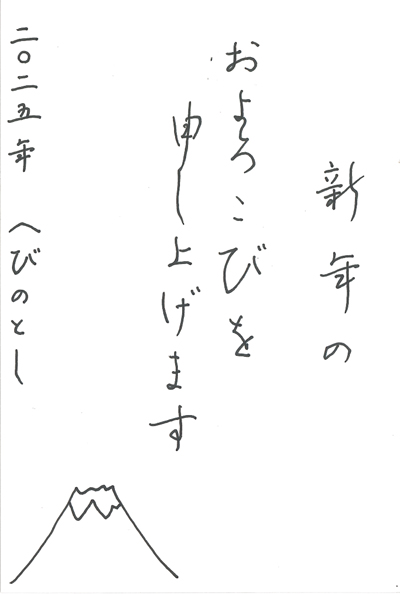 新年の
およろこびを
申し上げます
二〇二五年 へびのとし